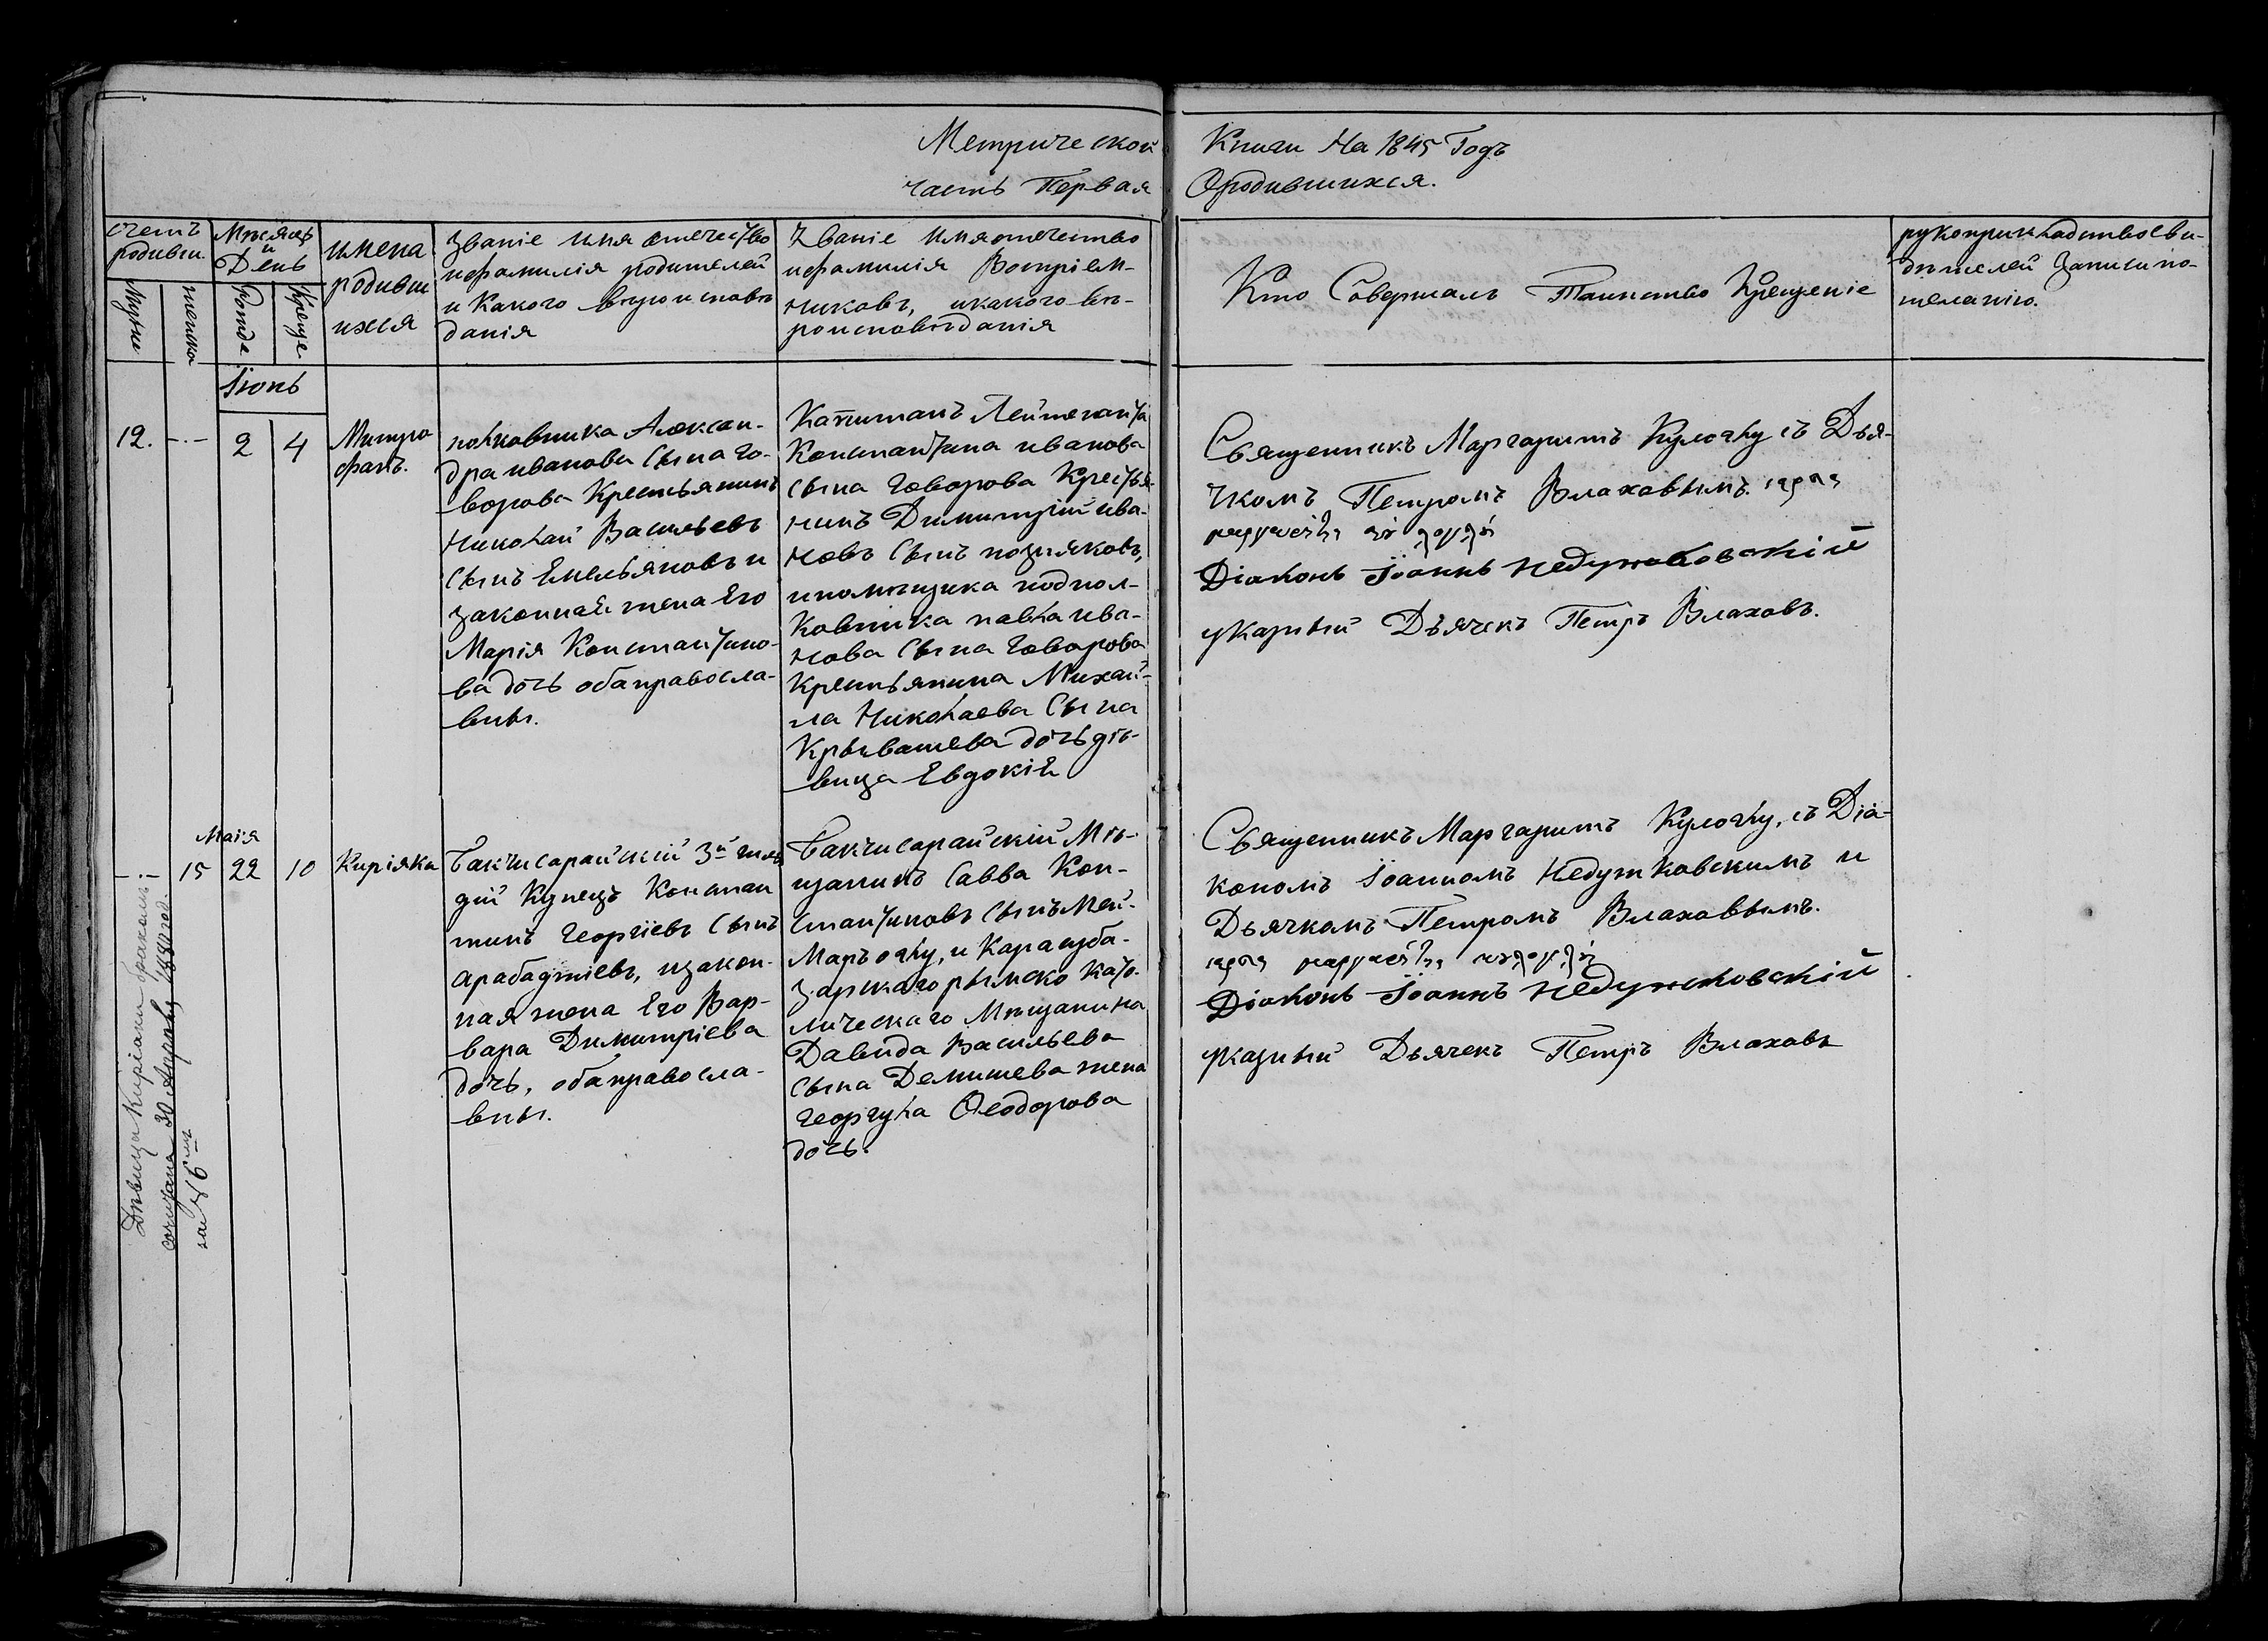 Метрической Книги На 1845 Годъ
часть Первая Ородившихся.
счетъ
родивш.
Мѣсяцъ
и
День
имена
родивши
ихся
Званіе имя отечество
ифамилія родителей
и Какого вѣроисповѣ
данія
Званіе Имяотечество
ифамилія Вопріем-
никовъ, икакого вѣ-
роисповѣданія
Кто Совершалъ Таинство Крещеніе
рукоприкладствосви-
дѣтелей Записипо-
желанію.
Мужск
женска
Рожде
Креще
Іюнь
12.
2
4
Митро
фанъ.
полковника Алексан-
дра иванова Сына Го-
ворова Крестьянинъ
Николай Васильевъ
Сынъ Емельяновъ и
законная жена Его
Марія Константино-
ва дочь обаправосла-
вны.
Капитанъ Лейтенанта
Константина иванова
Сына Говорова Крестья-
нинъ Димитрій ива-
новъ Сынъ позняковъ,
ипомѣщика подпол-
Ковника павла ива-
нова Сына Говорова
Крестьянина Михай-
ла Николаева Сына
Крывашева дочь дѣ-
вица Евдокія
Священникъ Маргаритъ Кулоглу съ Дья-
чкомъ Петромъ Влаховымъ.
Діаконъ Іоаннъ Недужковскій
указный Дьячекъ Петръ Влаховъ.
Маія
15
22
10
Киріяка
Бакчисарайскій 3й гиль
дій Купецъ Констан
тинъ Георгіевъ Сынъ
Арабаджіевъ, изакон-
ная жена Его Вар-
вара Димитріева
дочь, обаправосла-
вны.
Бакчисарайскій Мѣ-
щанинъ Савва Кон-
стантиновъ Сынъ Мей-
Маръ оглу, и Карасуба-
зарскаго рымско като-
лическаго Мѣщанина
Давида Васильева
Сына Демишева жена
Георгула Ѳеодорова
дочь.
Священникъ Маргаритъ Кулоглу, съ Діа-
кономъ Іоанномъ Недужковскимъ и
Дьячкомъ Петромъ Влаховымъ.
Діаконъ Іоаннъ Недужковскій
указный Дьячекъ Петръ Влаховъ
Дѣвица Киріаки бракомъ
сочетана 30 Апрѣля 1880 год.
за № 6мъ